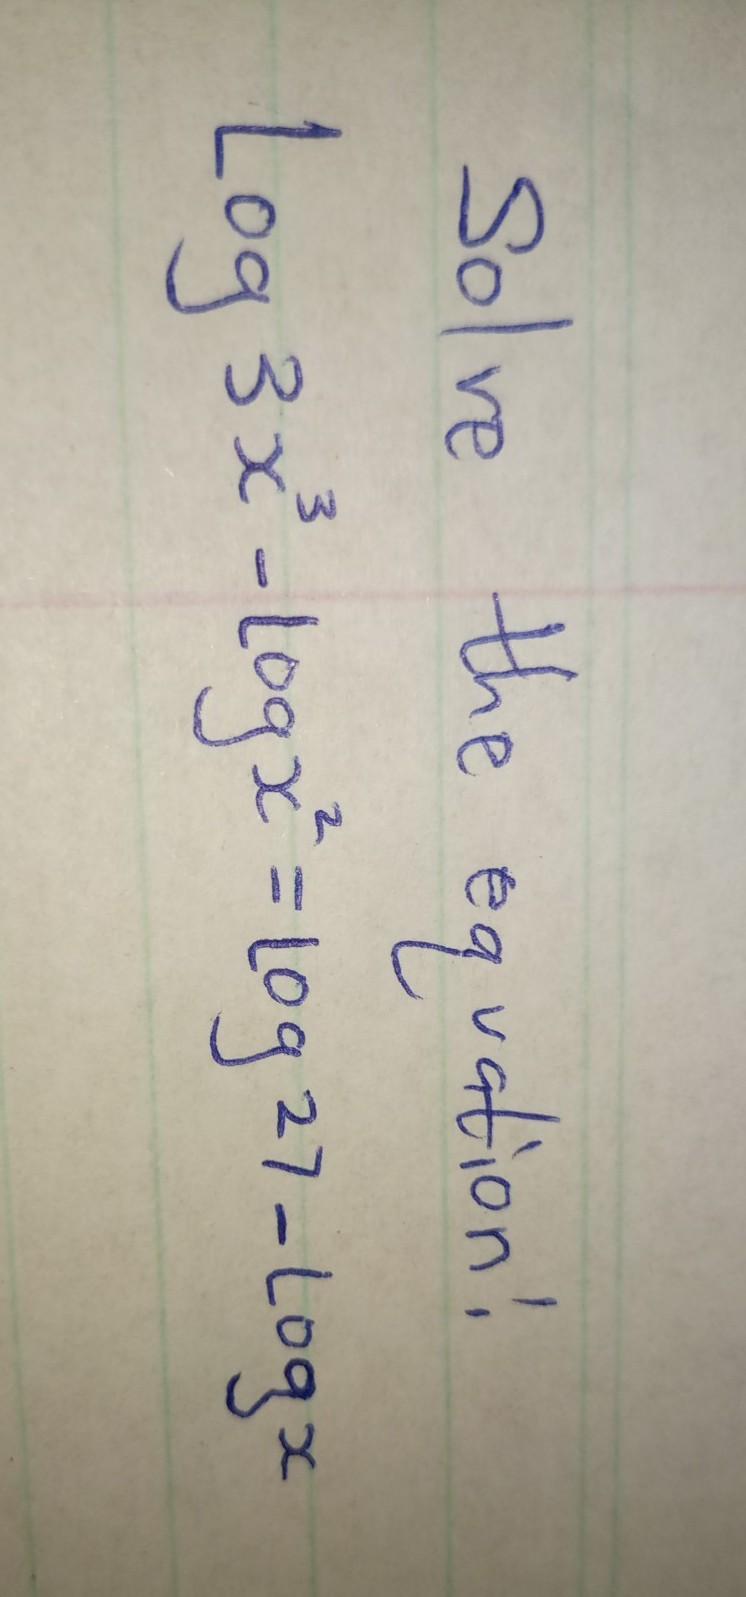 Solve the equation!
log 3x³ - log x² = log 27 - log x